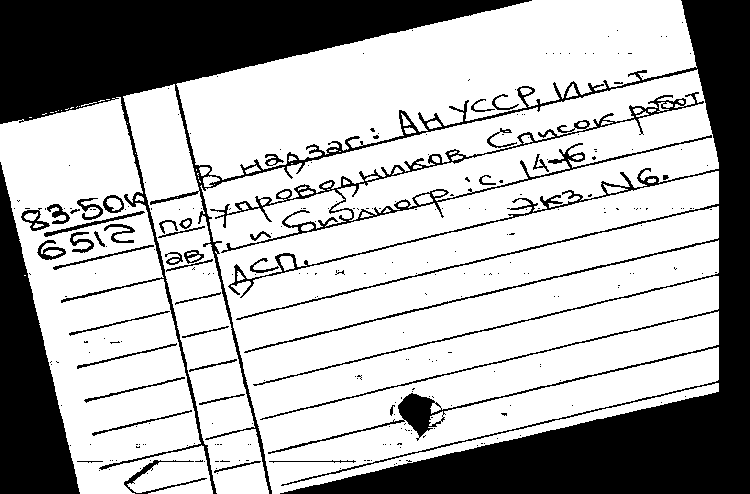 В надзаг.: АН УССР, Ин-т
полупроводников. Список работ
авт. и библиогр.: с. 14-16.
ДСП. Экз. N6.
83-50к
6512